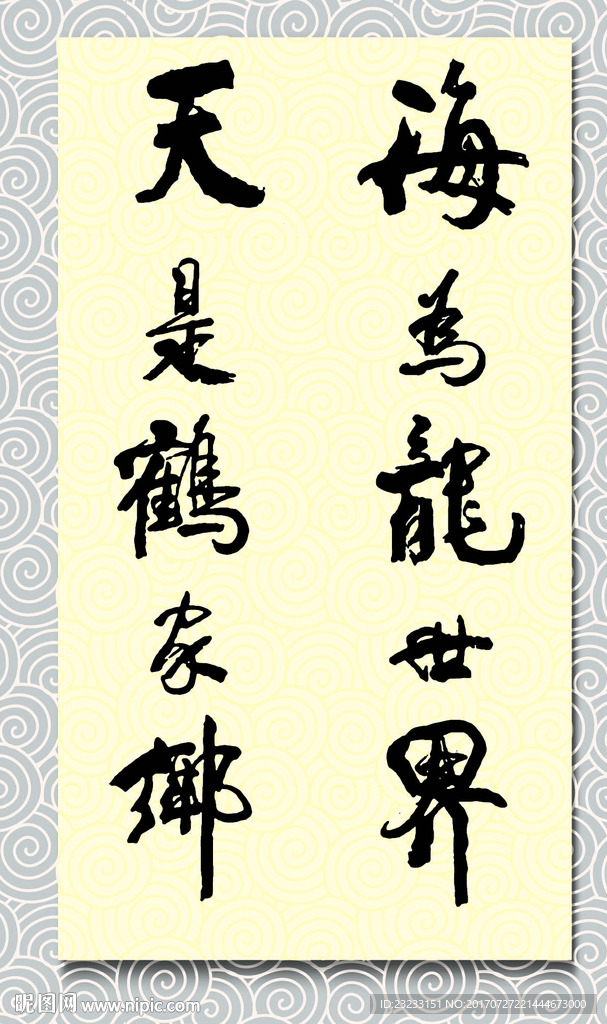 海为龍世界
天是鶴家鄉
昵图网 www.nipic.com
ID:23233151 NO:20170727221444673000